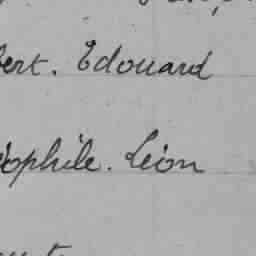 bert. Edouard
éophile. Léon